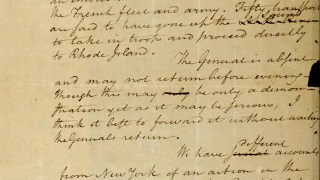 the French fleet and army. Fifty transports
are said to have gone up the Sound
to take in troops and proceed directly
to Rhode Island.
The General is absent
and may not return before evening
though this may only be only a demon-
stration yet as it may be serious, I
think it best to forward it without waiting
the Generals return.
We have different accounts
from New York of an action in the